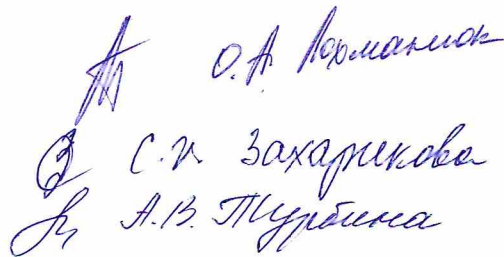 О.А. Лохманюк
С.И. Захарикова
А.В. Турбина